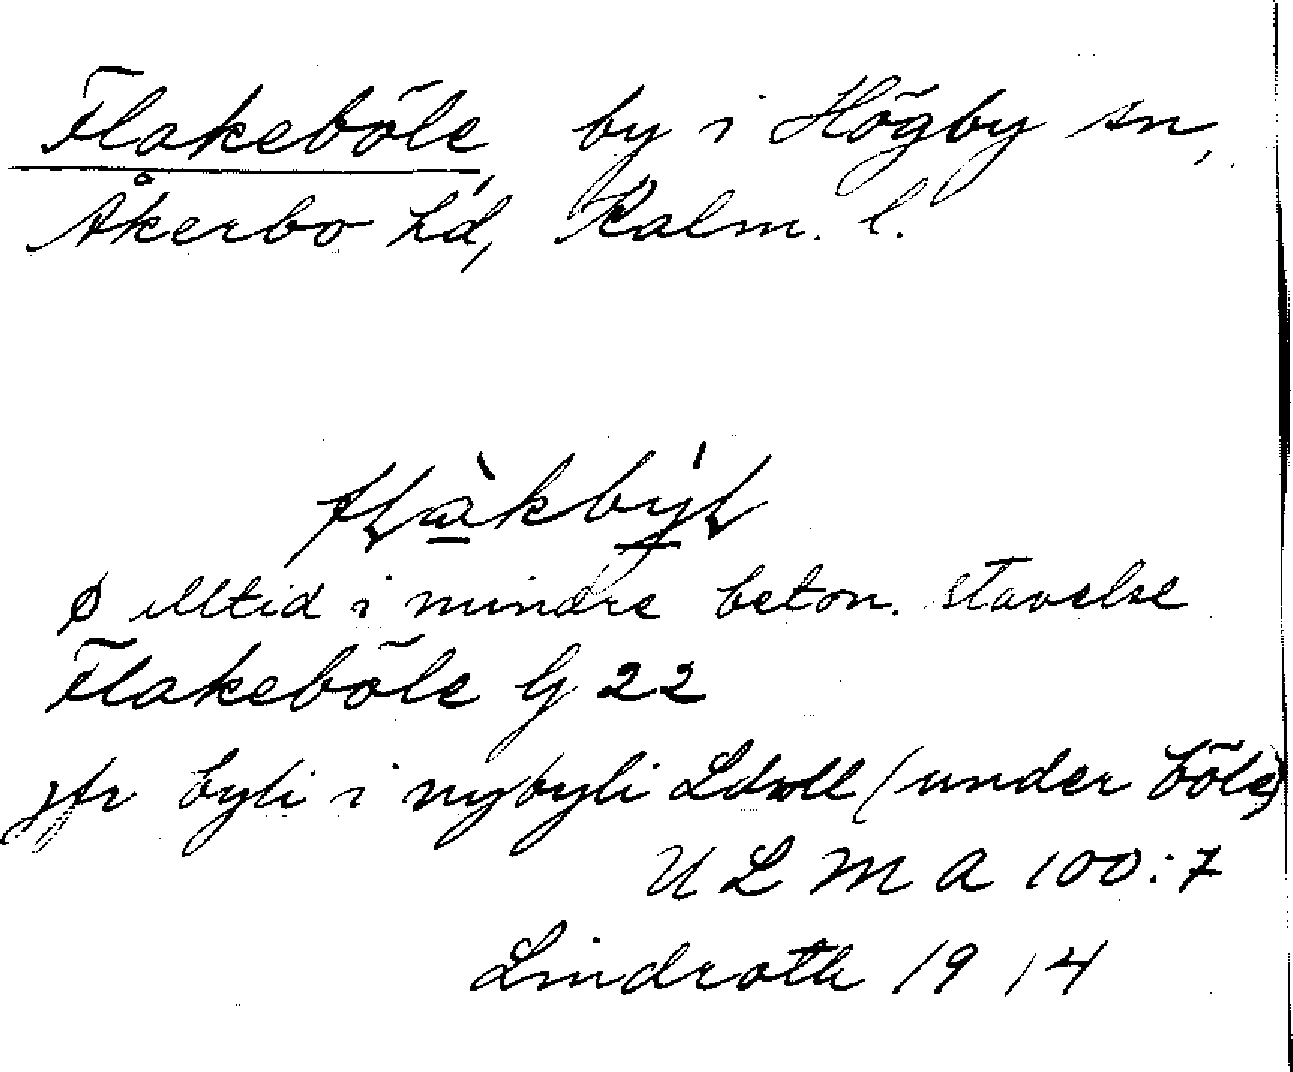 Flakeböle, by i Högby sn,
Åkerbo hd, Kalm. l.
flàkbý̱l
ø alltid i mindre beton. stavelse
Flakeböle G 22
jfr byli i nybyli Ldell (under böle)
ULMA 100:7
Lindroth 1914